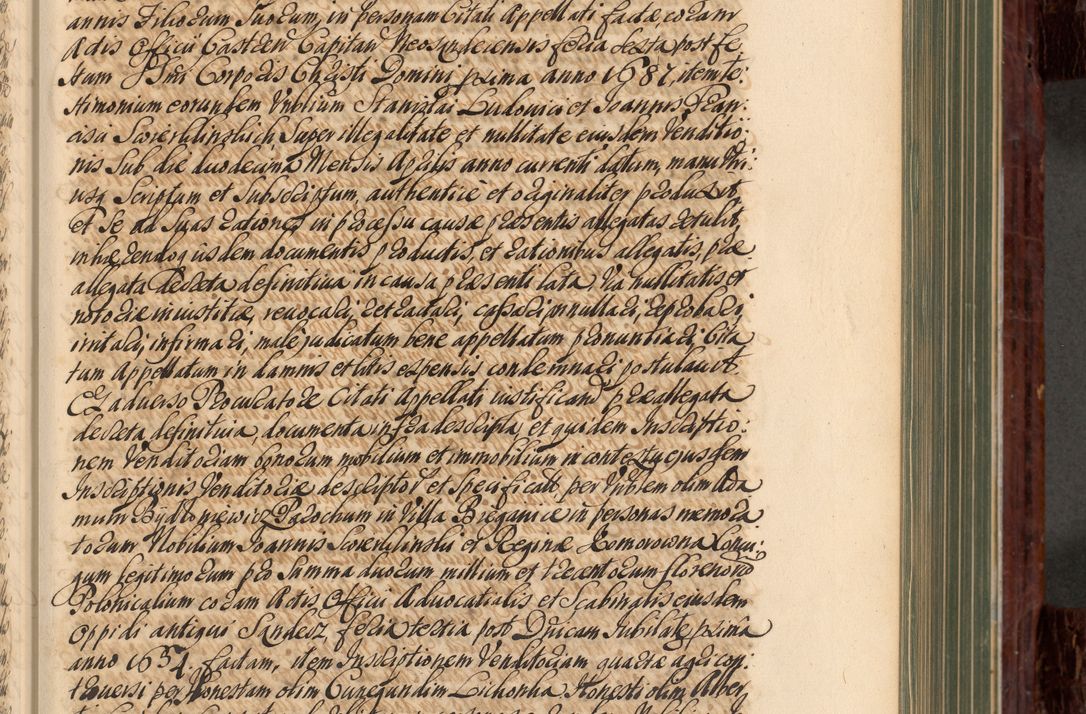 annis Filiorum Suorum, in personam Citati Appellati factæ coram
Actis Officii Castren Capitan Neosandecensis feria sexta post fe
stum SSmi Corporis Christi Domini proxima anno 1687, item te
stimonium eorundem Nobilium Stanislai Ludovici et Joannis Fran:
cisci Swierklinskich, Super illegalitate et nullitate eiusdem Venditio:
nis Sub die duodecima Mensis Aprilis anno currenti datum, manu
Scriptum et Subscriptum, authenticè et originaliter produxit
et Se ad Suas rationes in processu causæ præsentis allegatas retulit,
inhærendoq iisdem documentis productis, et rationibus allegatis, præ
allegata Decreta definitiva in causa præsenti lata, Via nullitatis et
notoriæ iniustitiæ, revocari, retractari, cassari, annullari, reprobari,
irritari, infirmari, male judicatum bene appellatum pronuntiari, Cita
tum Appellatum in damnis et litis expensis condemnari postulavit.
Ex adverso Procuratore Citati Appellati iustificand præallegata
decreta definitiva, documenta infra descripta, et quidem Inscriptio:
nem Venditoriam bonorum mobilium et immobilium in contextu ejusdem
Inscriptionis Venditoriæ descriptor et specificat per Nobilem olim Ada
mum Parochum in Villa Bieganice in personas memora
torum Nobilium Joannis Swierklinski et Reginæ Komorowna Conju:
gum legitimorum pro Summa duorum millium et trecentorum florenorū
Polonicalium coram Actis Officii Advocatialis et Scabinalis eiusdem
Oppidi antiqui Sandecz feria tertia post Dnicam Jubilate proxima
anno 1654. factam, item Inscriptionem Venditoriam quartæ agri con
troversi per Honestam olim Cunegundim Lichonka Honesti olim Albert